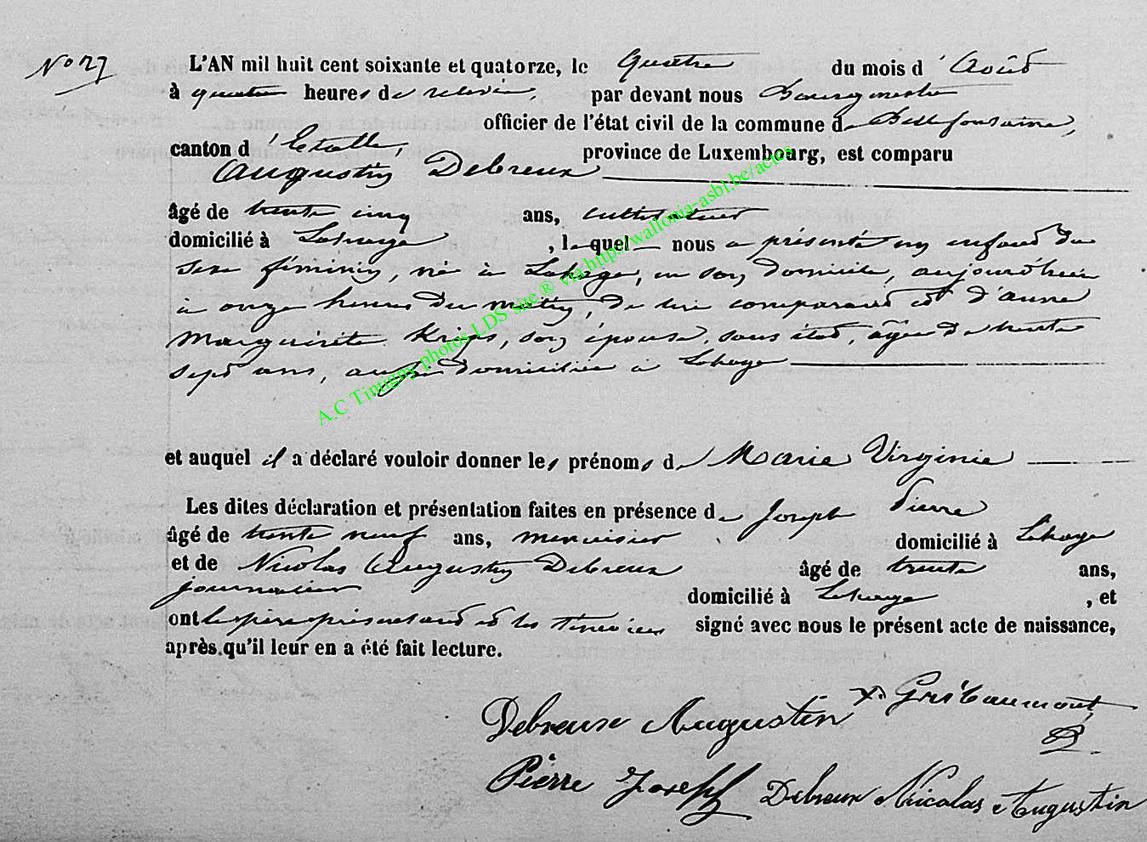 No 27
L'AN mil huit cent soixante et quatorze, le Quatre du mois d'Août
à quatre heures de relevée, par devant nous Bourgmestre
officier de l'état civil de la commune de Bellefontaine,
canton d'Etalle, province de Luxembourg, est comparu
Augustin Debreux
âgé de trente cinq ans, cultivateur
domicilié à Lahage, lequel nous a présenté un enfant du
sexe féminin, né à Lahage, en son domicile, aujourd'hui
à onze heures du matin, de lui comparant et d'Anne
Marguérite Krips, son épouse, sans état, âgée de trente
sept ans, aussi domiciliée à Lahage
et auquel il a déclaré vouloir donner les prénoms de Marie Virginie
Les dites déclaration et présentation faites en présence de Joseph Pierre
âgé de trente neuf ans, menuisier domicilié à Lahage
et de Nicolas Augustin Debreux âgé de trente ans,
journalier domicilié à Lahage, et
ont le père présentant et les témoins signé avec nous le présent acte de naissance,
après qu'il leur en a été fait lecture.
Debreux Augustin Gribaumont
Pierre Joseph Debreux Nicolas Augustin
A.C Tintigny photos LDS site ® via http://wallonia-asbl.be/actes